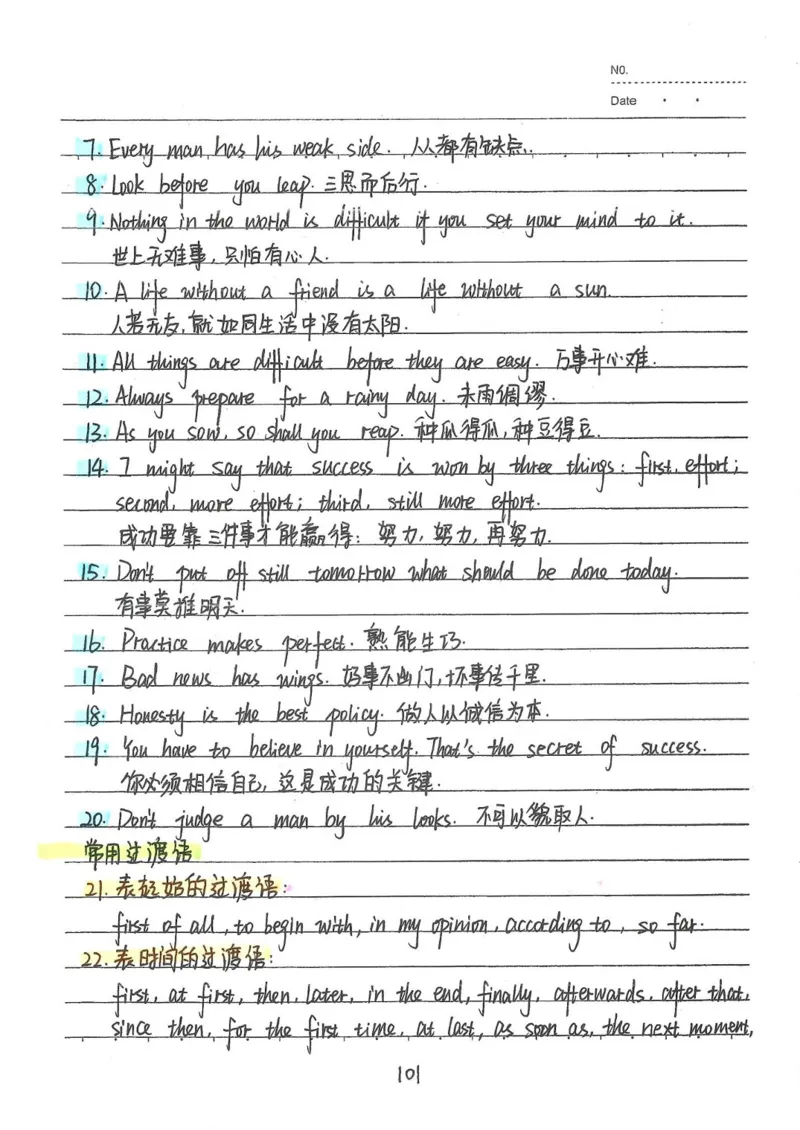 NO.
Date
7. Every man has his weak side. 人人都有缺点.
8. Look before you leap. 三思而后行.
9. Nothing in the world is difficult if you set your mind to it.
世上无难事，只怕有心人.
10. A life without a friend is a life without a sun.
人若无友，就如同生活中没有太阳.
11. All things are difficult before they are easy. 万事开心难.
12. Always prepare for a rainy day. 未雨绸缪.
13. As you sow, so shall you reap. 种瓜得瓜，种豆得豆.
14. I might say that success is won by three things: first, effort;
second, more effort; third, still more effort.
成功要靠三件事才能赢得：努力，努力，再努力.
15. Don't put off still tomorrow what should be done today.
有事莫推明天.
16. Practice makes perfect. 熟能生巧.
17. Bad news has wings. 好事不出门，坏事传千里.
18. Honesty is the best policy. 做人以诚信为本.
19. You have to believe in yourself. That's the secret of success.
你必须相信自己，这是成功的关键.
20. Don't judge a man by his looks. 不可以貌取人.
常用过渡语
21. 表起始的过渡语：
first of all, to begin with, in my opinion, according to, so far.
22. 表时间的过渡语：
first, at first, then, later, in the end, finally, afterwards, after that,
since then, for the first time, at last, as soon as, the next moment,
101